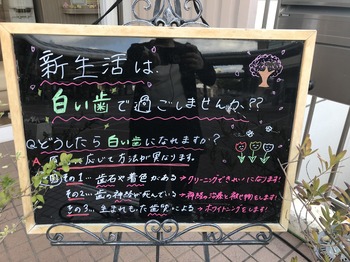 新生活は、
白い歯で過ごしませんか??
Q.どうしたら白い歯になれますか?
A.原因に応じて方法が異なります。
原因その1…歯石や着色がある→クリーニングできれいになります!
その2…歯の神経が死んでいる→神経の治療と被せ物をします!
その3…生まれもった歯質による→ホワイトニングをします!